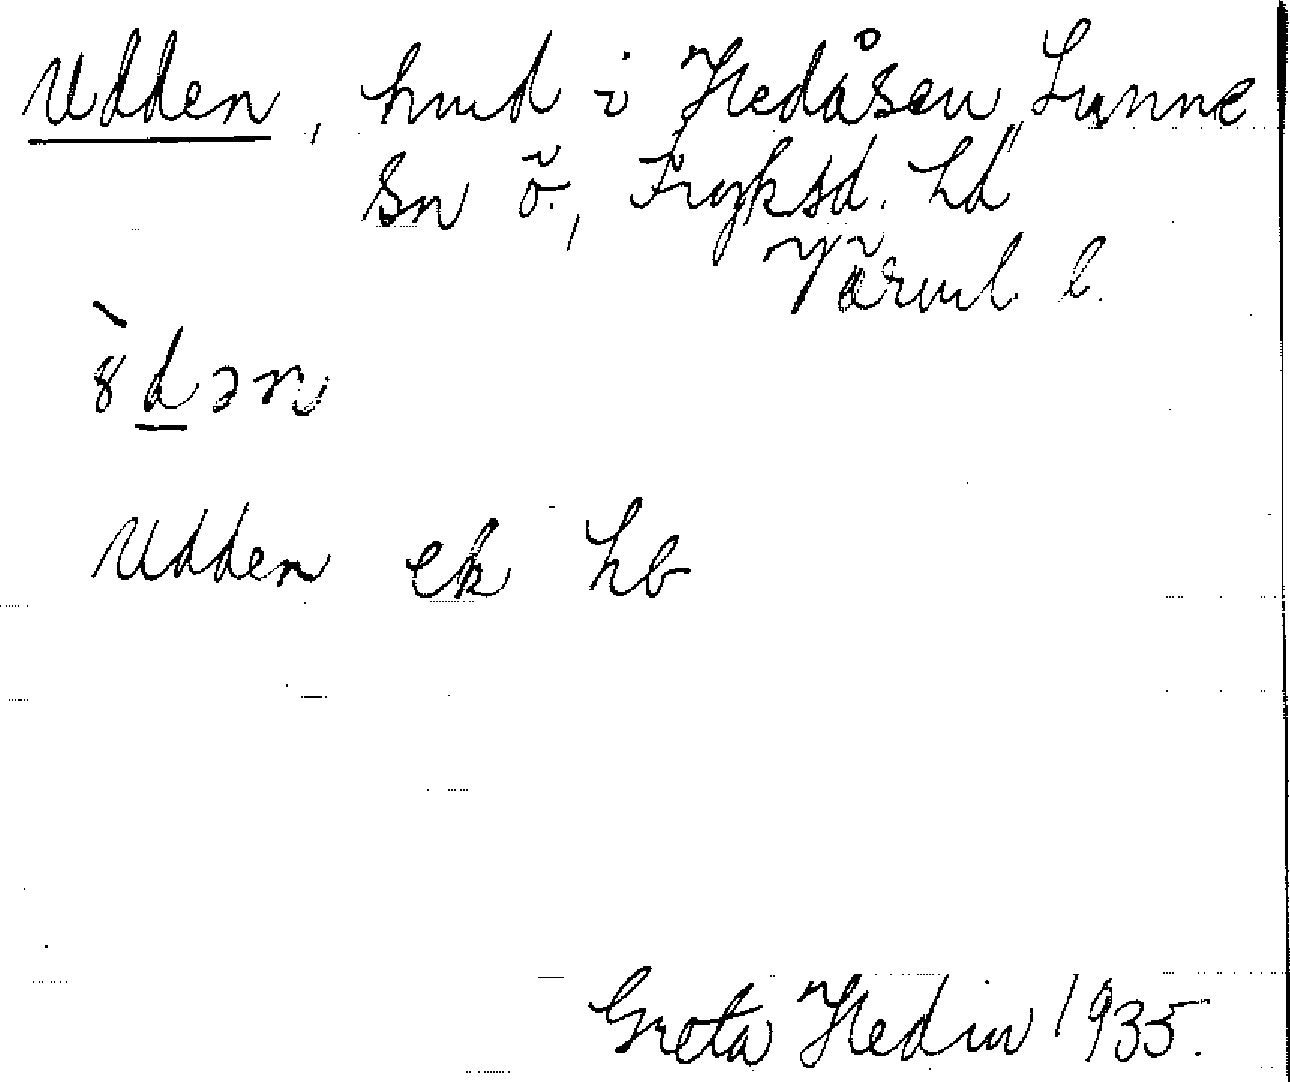 Udden, hmd i Hedåsen, Sunne
Sn ö., Fryksd. hd
Värml. l.
ꝸ̀dən
Udden ek hb
Greta Hedin 1935.